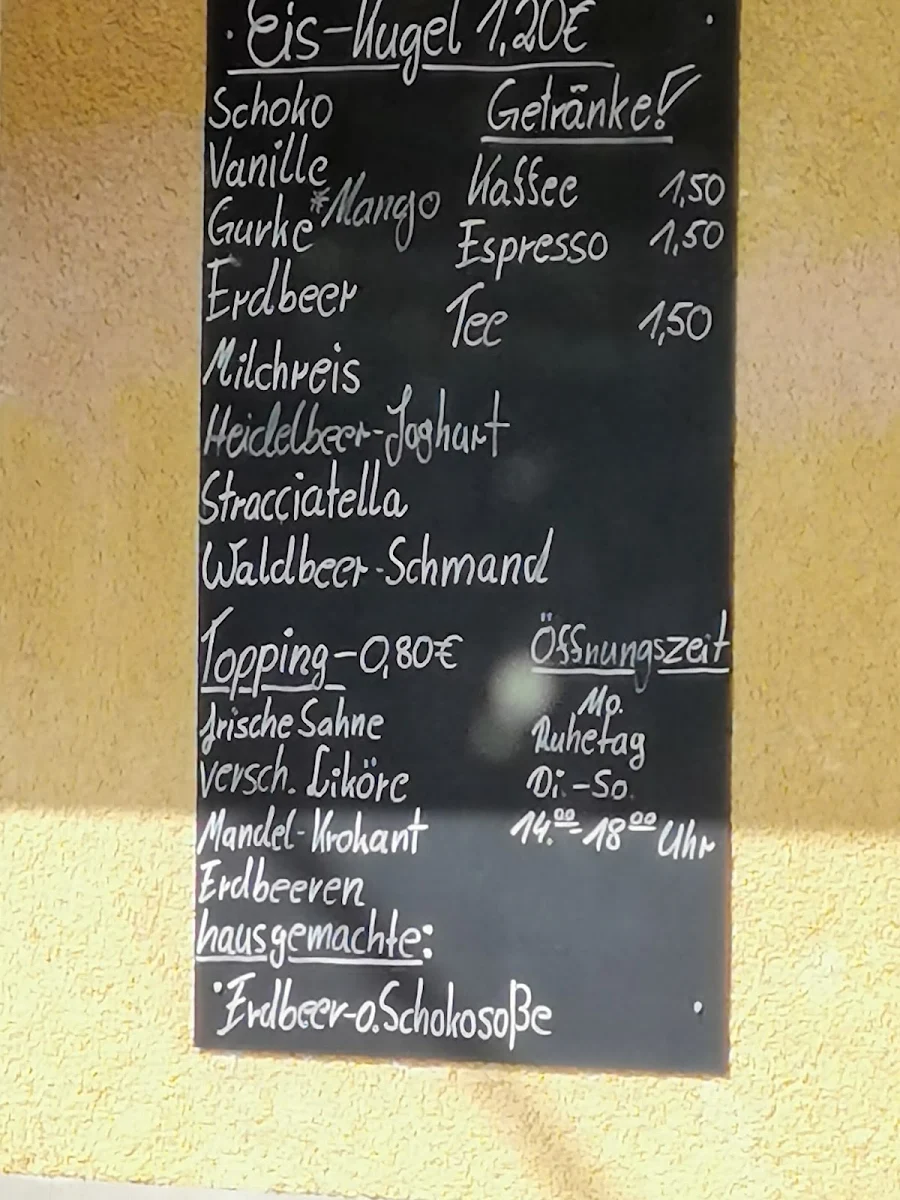 Eis-Kugel 1,20€
Schoko
Vanille
Gurke *Mango
Erdbeer
Milchreis
Heidelbeer-Joghurt
Stracciatella
Waldbeer-Schmand
Getränke!
Kaffee 1,50
Espresso 1,50
Tee 1,50
Topping-0,80€
frische Sahne
versch. Liköre
Mandel-Krokant
Erdbeeren
hausgemachte:
Erdbeer-o.Schokosoße
Öffnungszeit
Mo.
Ruhetag
Di.-So.
14.00-18 00 Uhr